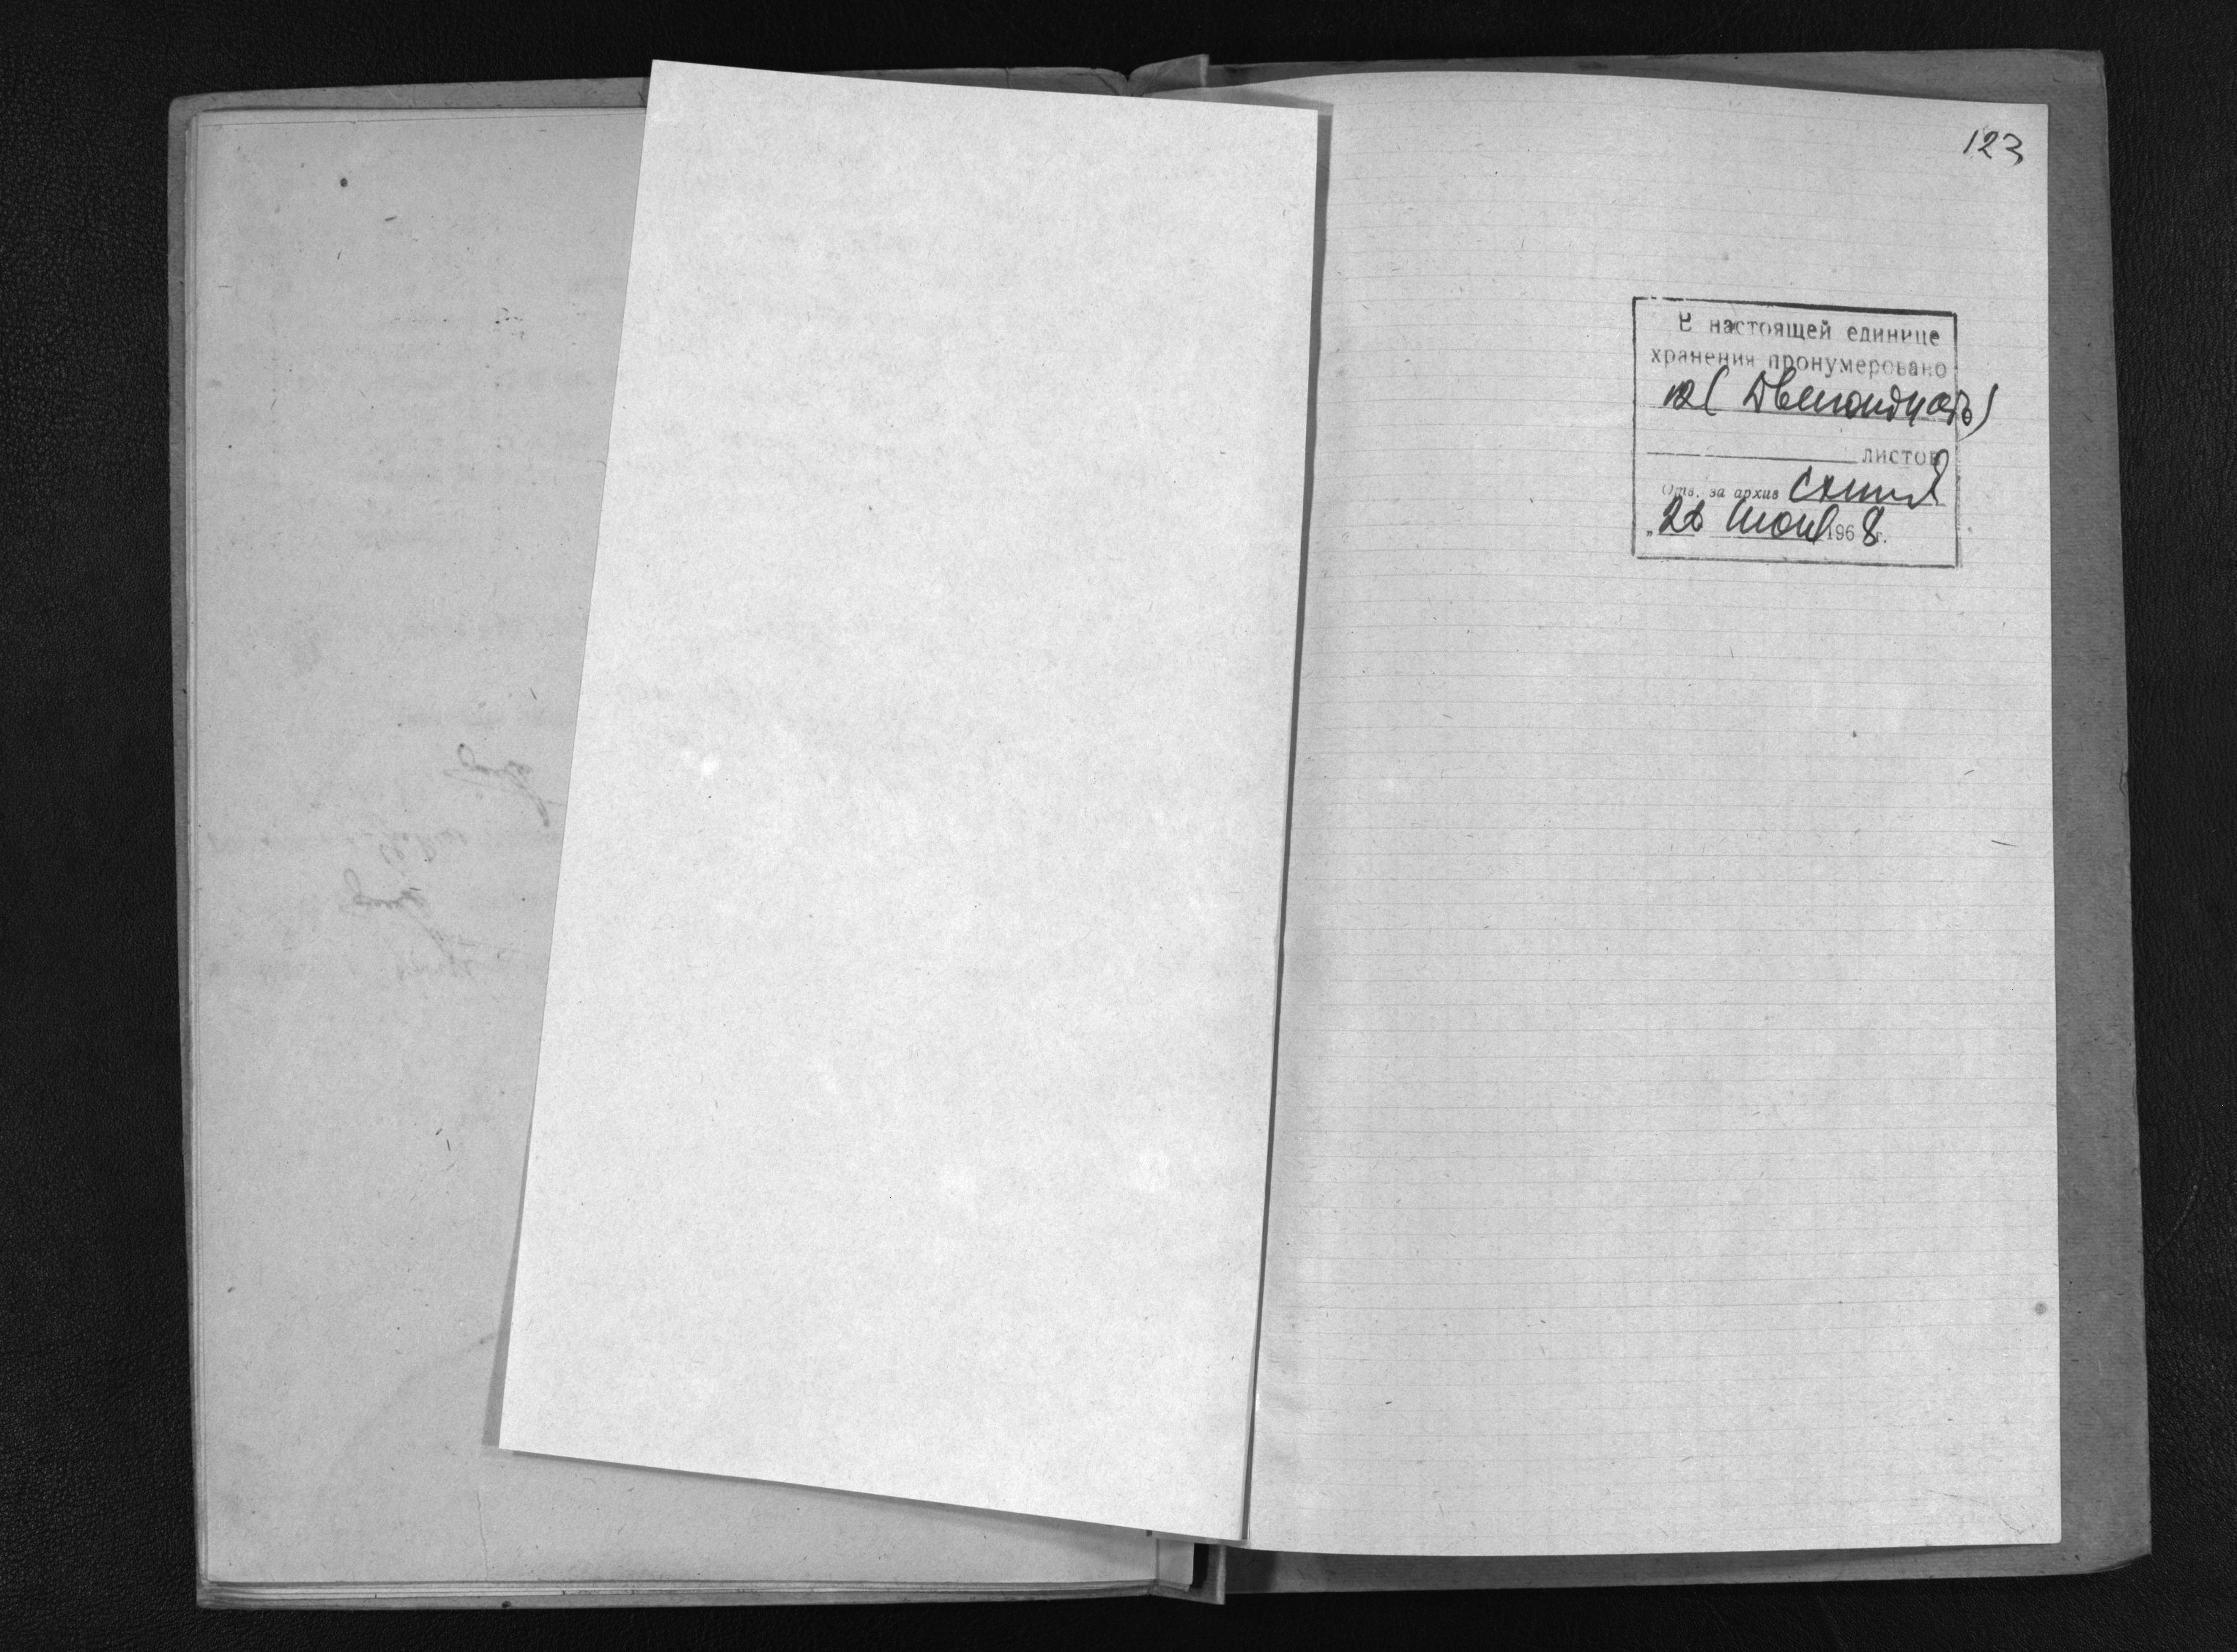 123
В настоящей единице
хранения пронумеровано
12 (Двенадцать)
листов
Отв. за архив
"26 июня 1968 г.